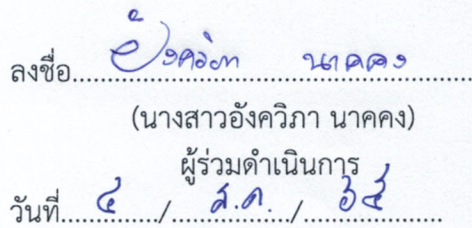 ลงชื่อ อังควิภา นาคคง
(นางสาวอังควิภา นาคคง)
ผู้ร่วมดำเนินการ
วันที่ ๔ / ส.ค. / ๖๔